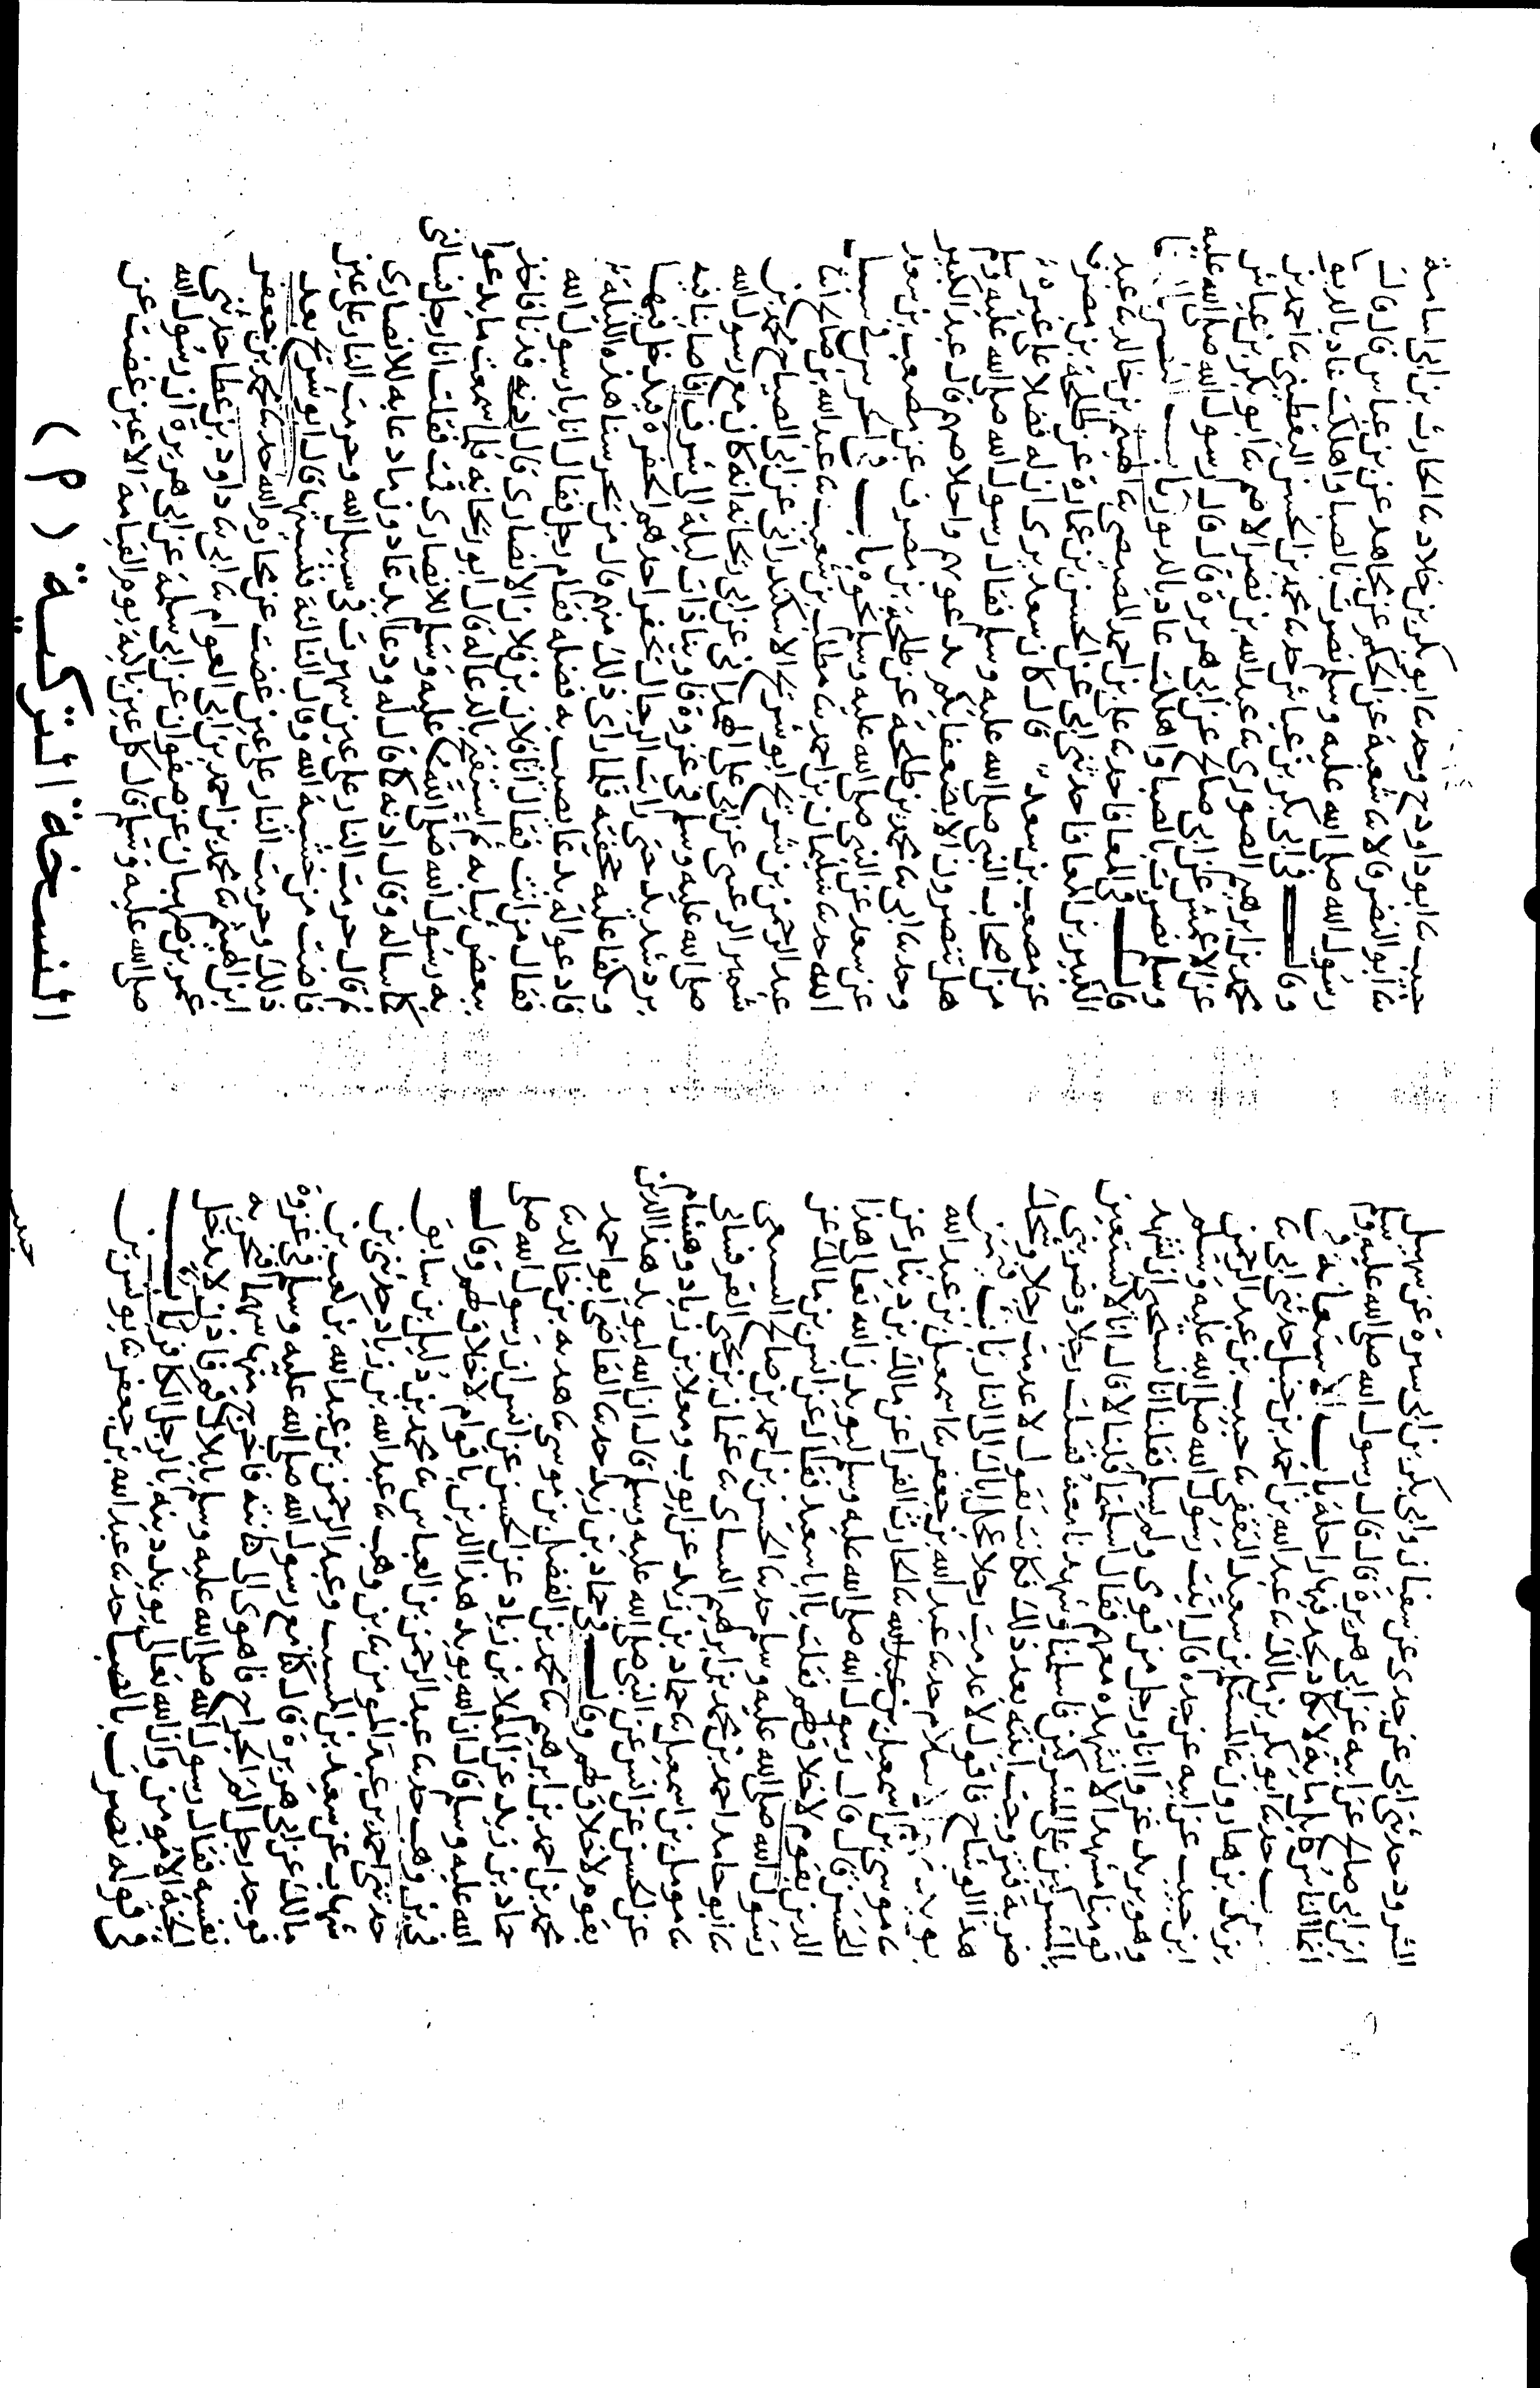 الثرود حدثنى ابى عن جدى عن سفيان وابى بكر بن ابى سبرة عن سهيل
ابن ابى صالح عن ابيه عن ابى هريرة قال قال رسول الله صلى الله عليه وسلم
انما الناس كابل مائة لا تكاد تجد فيها راحلة باب الاستعانة في
حدثنا ابو بكر بن مالك ثنا عبد الله بن احمد بن حنبل حدثنى ابى ثنا
يزيد بن هارون ثنا المستلم بن سعيد الثقفى ثنا خبيب بن عبد الرحمن
ابن خبيب عن ابيه عن جده قال اتيت رسول الله صلى الله عليه وسلم
وهو يريد غزوا انا ورجل من قومى ولم نسلم فقلنا انا نستحيى ان يشهد
قومنا مشهدا لا نشهده معهم فقال اسلمتما قلنا لا قال انا لا نستعين
بالمشركين على المشركين فاسلمنا وشهدنا معه فقتلت رجلا وضربنى
ضربة فتزوجت ابنته بعد ذلك فكانت تقول لا عدمت رجلا وشحك
هذا الوشاح فاقول لا عدمت رجلا عجل اباك الى النار باب فيمن
يويد به الاسلام حدثنا عبد الله بن جعفر ثنا اسمعيل بن عبد الله
ثنا موسى بن اسمعيل بن عبد الله ثنا الحارث الفرا عن مالك بن دينار عن
الحسن قال قال رسول الله صلى الله عليه وسلم ليويدن الله تعالى هذا
الدين بقوم لا خلاق لهم فقلت يا ابا سعيد فقال عن انس بن مالك عن
رسول الله صلى الله عليه وسلم حدثنا الحسن بن احمد بن صالح السبيعى
ثنا ابو حامد احمد بن محمد بن ابرهيم النساى ثنا عثمان بن يحيى القرقسانى
ثنا مومل بن اسمعيل ثنا حماد بن زيد عن ايوب ومعلا بن زياد وهشام
عن الحسن عن انس عن النبى صلى الله عليه وسلم قال ان الله ليويد هذا الدين
بقوم لا خلاق لهم وقال في حماد بن زيد حدثنا القاضى ابو احمد
محمد بن احمد بن ابرهيم ثنا محمد بن الفضل بن موسى ثنا هدبه بن خالد ثنا
حماد بن زيد عن المعلا بن زياد عن الحسن عن انس ان رسول الله صلى
الله عليه وسلم قال ان الله يويد هذا الدين باقوام لا خلاق لهم وقال
في بن وهب حدثنا عبد الرحمن بن العباس ثنا محمد بن دليل بن سابق
حدثنى احمد بن عبد المومن ثنا بن وهب ثنا عبد الله بن زياد حدثنى بن
شهاب عن سعيد بن المسيب وعبد الرحمن بن عبد الله بن كعب بن
مالك عن ابى هريرة قال كنا مع رسول الله صلى الله عليه وسلم في غزوة
فوجد رجل الم الجراح فاهوى الى كنانته فاخرج منها سهما فنحر به
نفسه فقال رسول الله صلى الله عليه وسلم يا بلال قم فاذن لا يدخل
الجنة الا مومن وان الله تعالى يويد دينه بالرجل الكافر باب
في قوله نصرت بالصبا حدثنا عبد الله بن جعفر ثنا يونس بن
حبيب
حبيب ثنا ابو داود ح وحدثنا ابو بكر بن خلاد ثنا الحارث بن ابى اسامة
ثنا ابو النضر قالا ثنا شعبة عن الحكم عن مجاهد عن بن عباس قال قال
رسول الله صلى الله عليه وسلم نصرت بالصبا واهلكت عاد بالدبور
وقال في ابى بكر بن عياش حدثنا محمد بن الحسن اليقطينى ثنا احمد بن
محمد بن ابرهيم الصورى ثنا عبد الله بن نصر الاصم ثنا ابو بكر بن عياش
عن الاعمش عن ابى صالح عن ابى هريرة قال قال رسول الله صلى الله عليه
وسلم نصرت بالصبا واهلكت عاد بالدبور باب
قال في المعافا حدثنا على بن احمد المصيصى ثنا الهيثم بن خالد ثنا عبد
الكبير بن المعافا حدثنى ابى عن الحسن بن عمارة عن طلحة بن مصرف
عن مصعب بن سعد قال كان سعد يرى ان له فضلا على غيره
من اصحاب النبى صلى الله عليه وسلم فقال رسول الله صلى الله عليه وسلم
هل تنصرون الا بضعفايكم بدعوتهم واخلاصهم قال عبد الكبير
وحدثنا ابى ثنا محمد بن طلحة عن طلحة بن مصرف عن مصعب بن سعد
عن سعد عن النبى صلى الله عليه وسلم نحوه باب في الحرس في سبيل
الله حدثنا سليمان بن احمد ثنا مطلب بن شعيب ثنا عبد الله بن صالح انا
عبد الرحمن بن شريح ابو شريح الاسكندرانى عن ابى الصباح محمد بن
شمير الرعينى عن ابى على الهمدانى عن ابى ريحانة انه كان مع رسول الله
صلى الله عليه وسلم في غزوة فاوينا ذات ليلة الى شرف فاصابنا فيه
برد شديد حتى رايت الرجال يحفر احدهم الحفرة فيدخل فيها
ويكفا عليه بحجفته فلما راى ذلك منهم قال من يحرسنا هذه الليلة
فادعوا له بدعا يصيب به فضله فقام رجل فقال انا يا رسول الله
فقال من انت فقال انا فلان بن فلان الانصارى قال ادنه فدنا فاخذ
ببعض ثيابه ثم استفتح بالدعا له قال ابو ريحانة فلما سمعت ما يدعوا
به رسول الله صلى الله عليه وسلم للانصارى قمت فقلت انا رجل فسالنى
كما ساله وقال ادنه كما قال له ودعا لى بدعا دون ما دعا به للانصارى
ثم قال حرمت النار على عين سهرت في سبيل الله وحرمت النار على عين
فاضت من خشية الله وقال الثالثة فنسيتها قال ابو شريح بعد
ذلك وحرمت النار على عين غضت عن محارم الله حدثنا محمد بن جعفر
ابن الهيثم ثنا محمد بن احمد بن ابى العوام ثنا ابى ثنا داود بن عطا حدثنى
عمر بن صهبان عن صفوان عن ابى سلمة عن ابى هريرة ان رسول الله
صلى الله عليه وسلم قال كل عين باكية يوم القيامة الا عين غضت عن
النسخة التركية (م)